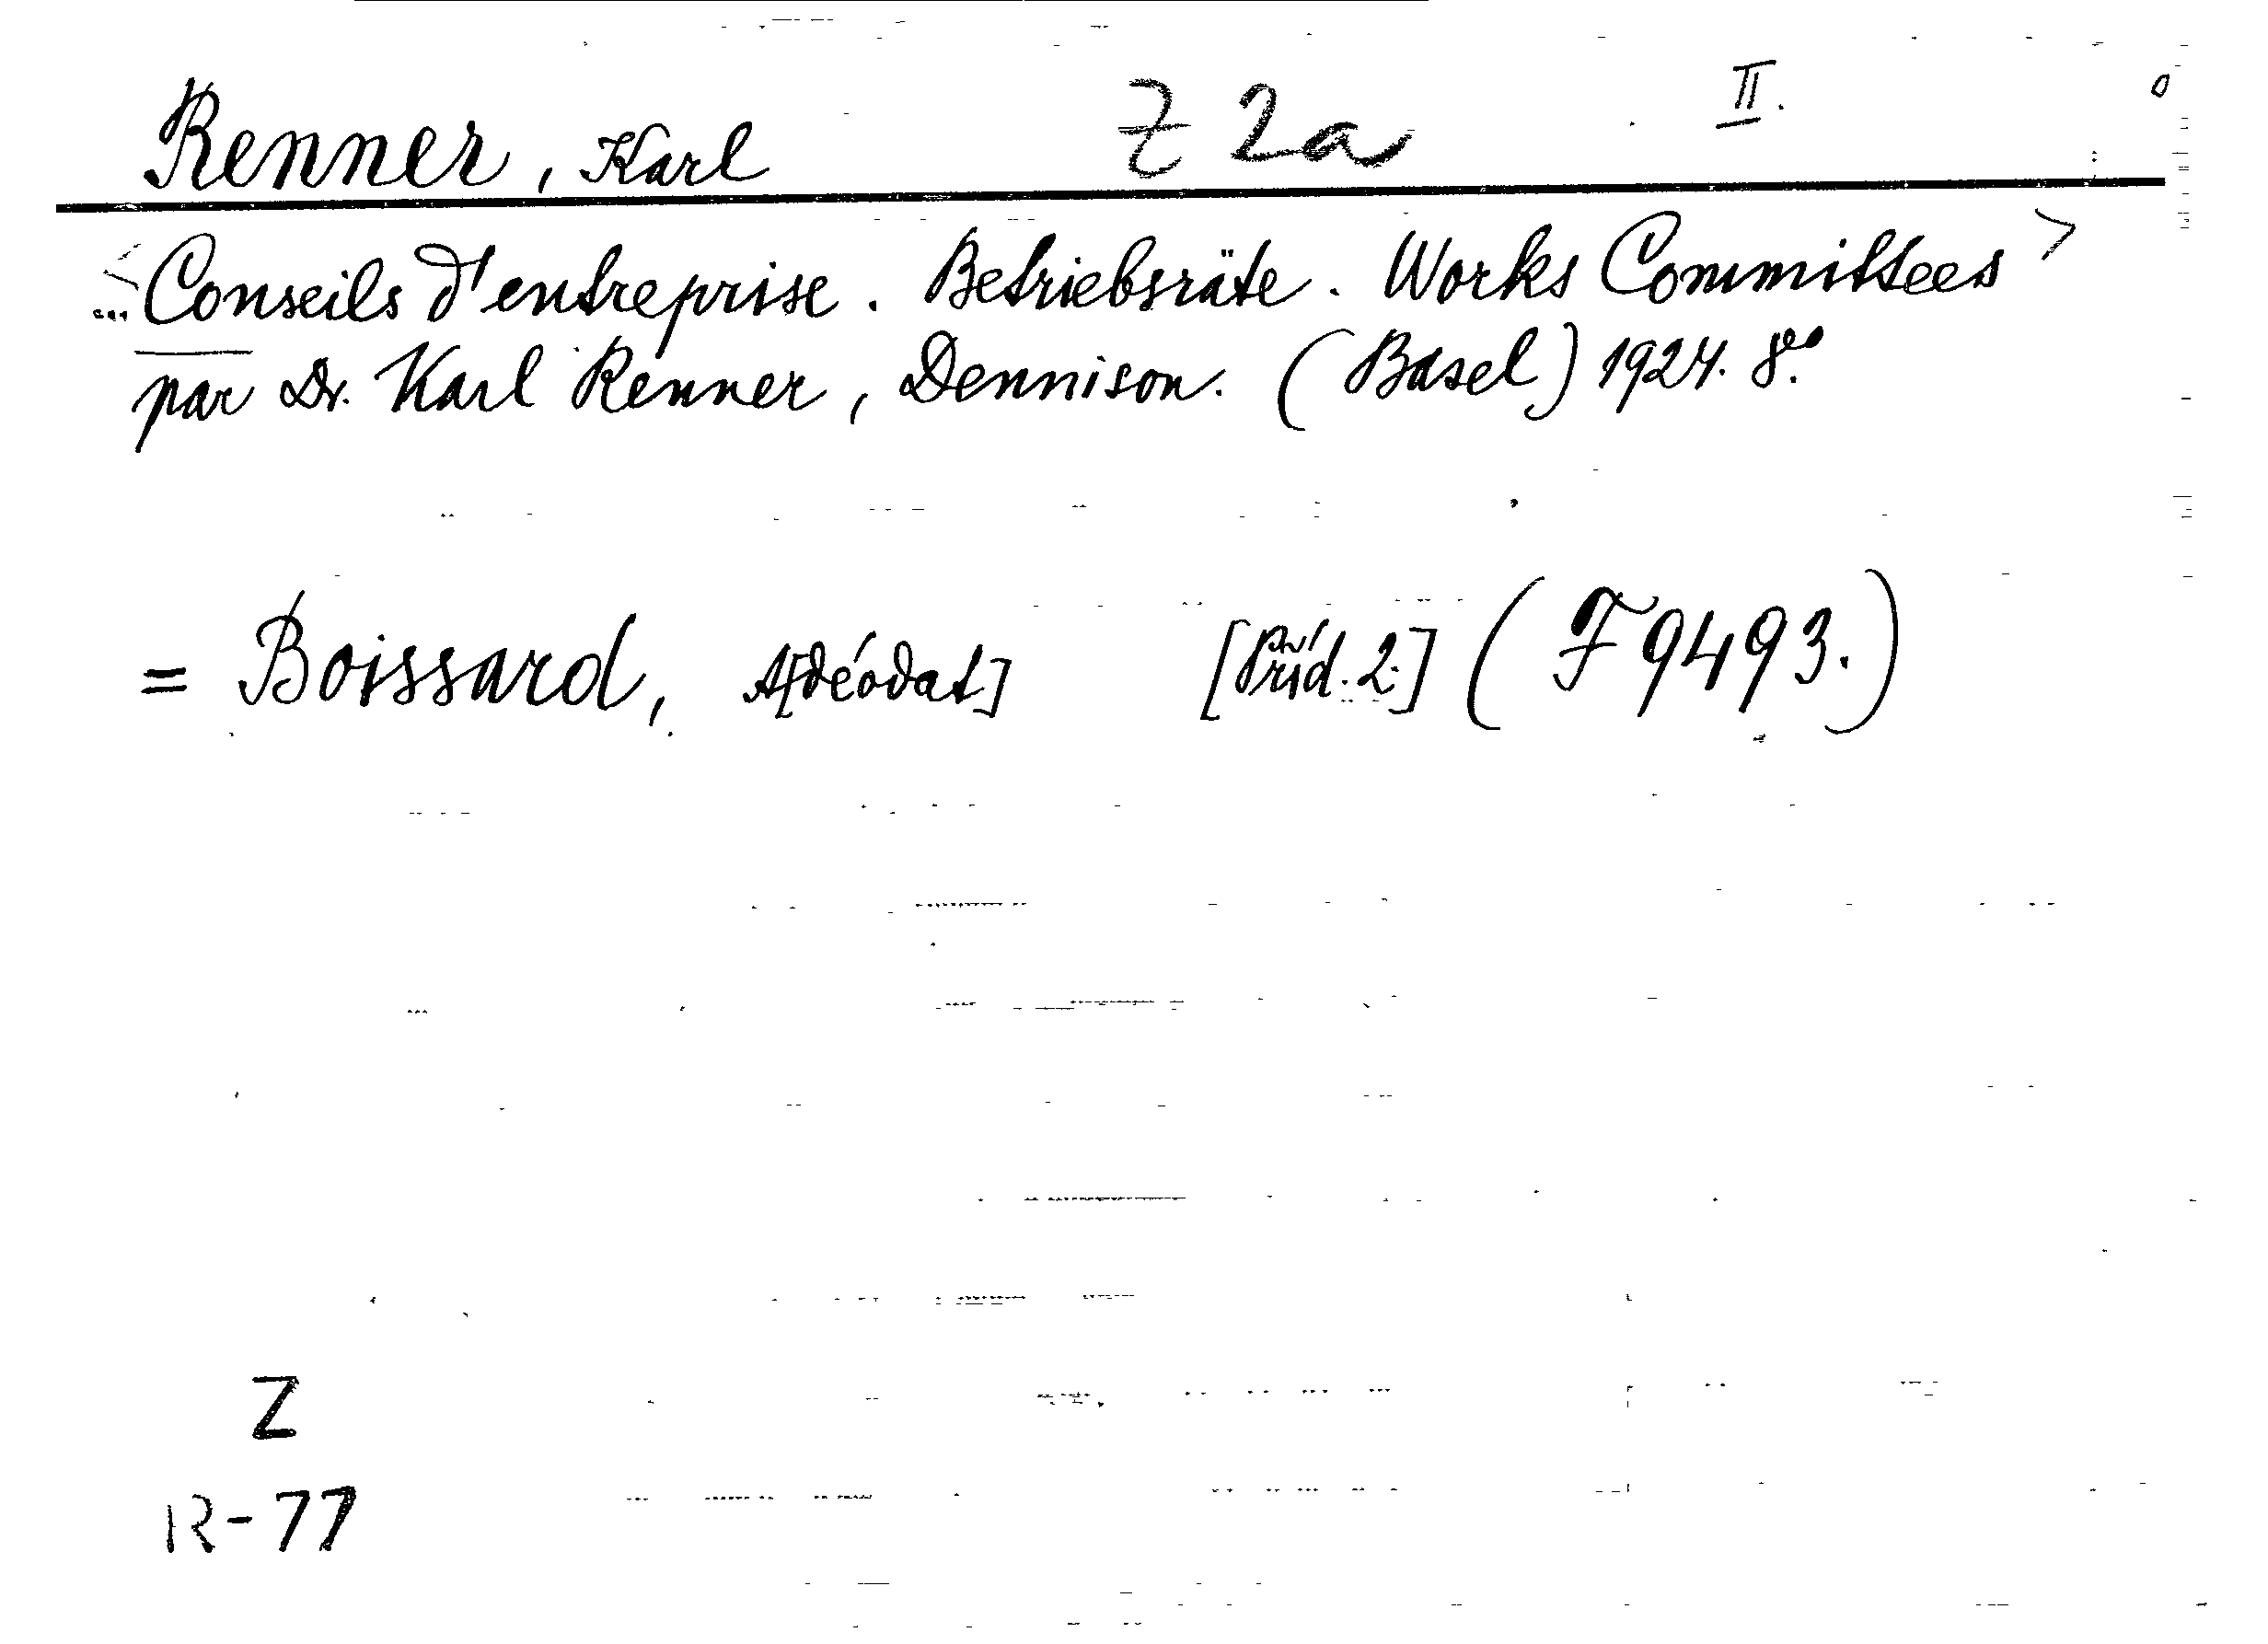 Renner, Karl Z 2a II.
<Conseils d'entreprise. Betriebsräte. Works Committees>
... par Dr. Karl Renner, Dennison. (Basel) 1924. 8°.
= Boissard, A[déodat] [Příd. 2.] (F 9493.)
Z
R-77